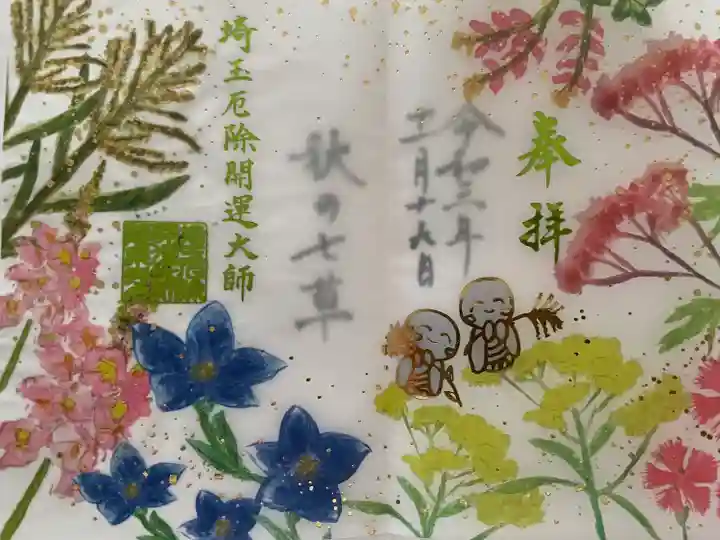 奉拝
令和三年
十一月十九日
秋の七草
埼玉厄除開運大師